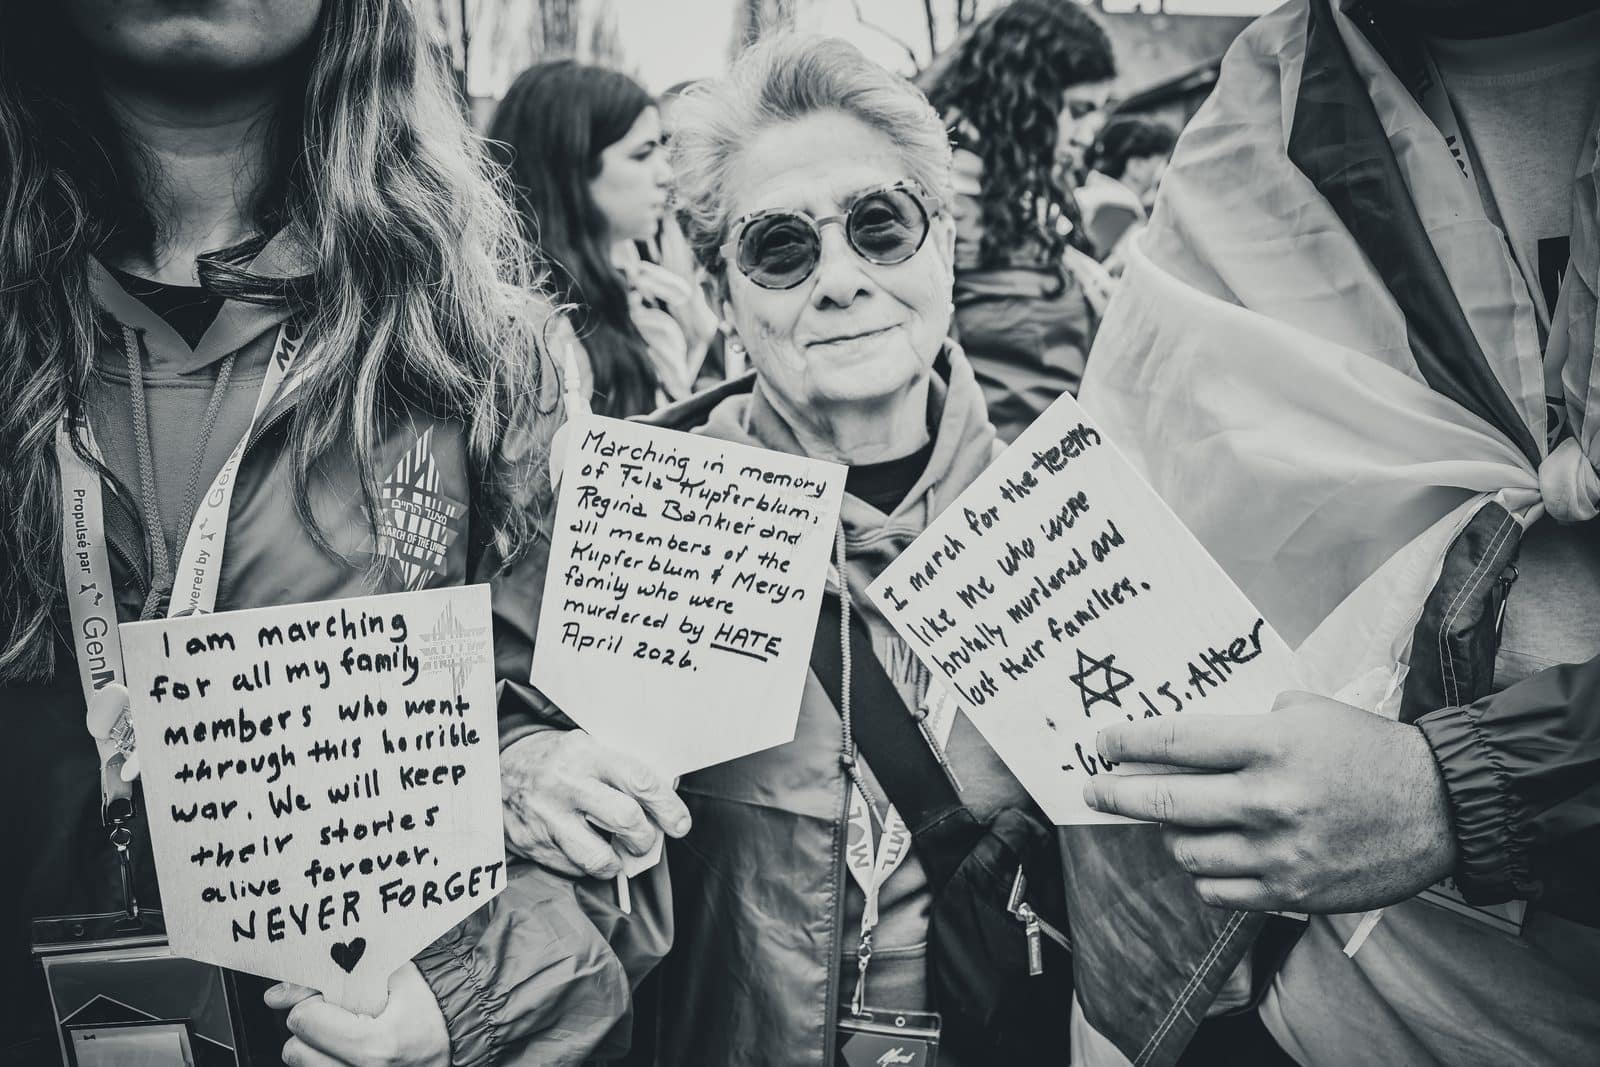 I am marching
for all my family
members who went
through this horrible
war. We will keep
their stories
alive forever.
NEVER FORGET
Marching in memory
of Fela Kupferblum,
Regina Bankier and
all members of the
Kupferblum & Meryn
family who were
murdered by HATE
April 2026.
I march for the teens
like me who were
brutally murdered and
lost their families.
J. Alter
מצעד החיים
MARCH OF THE LIVING
Propulsé par
GenM
wered by
Gen
MTL